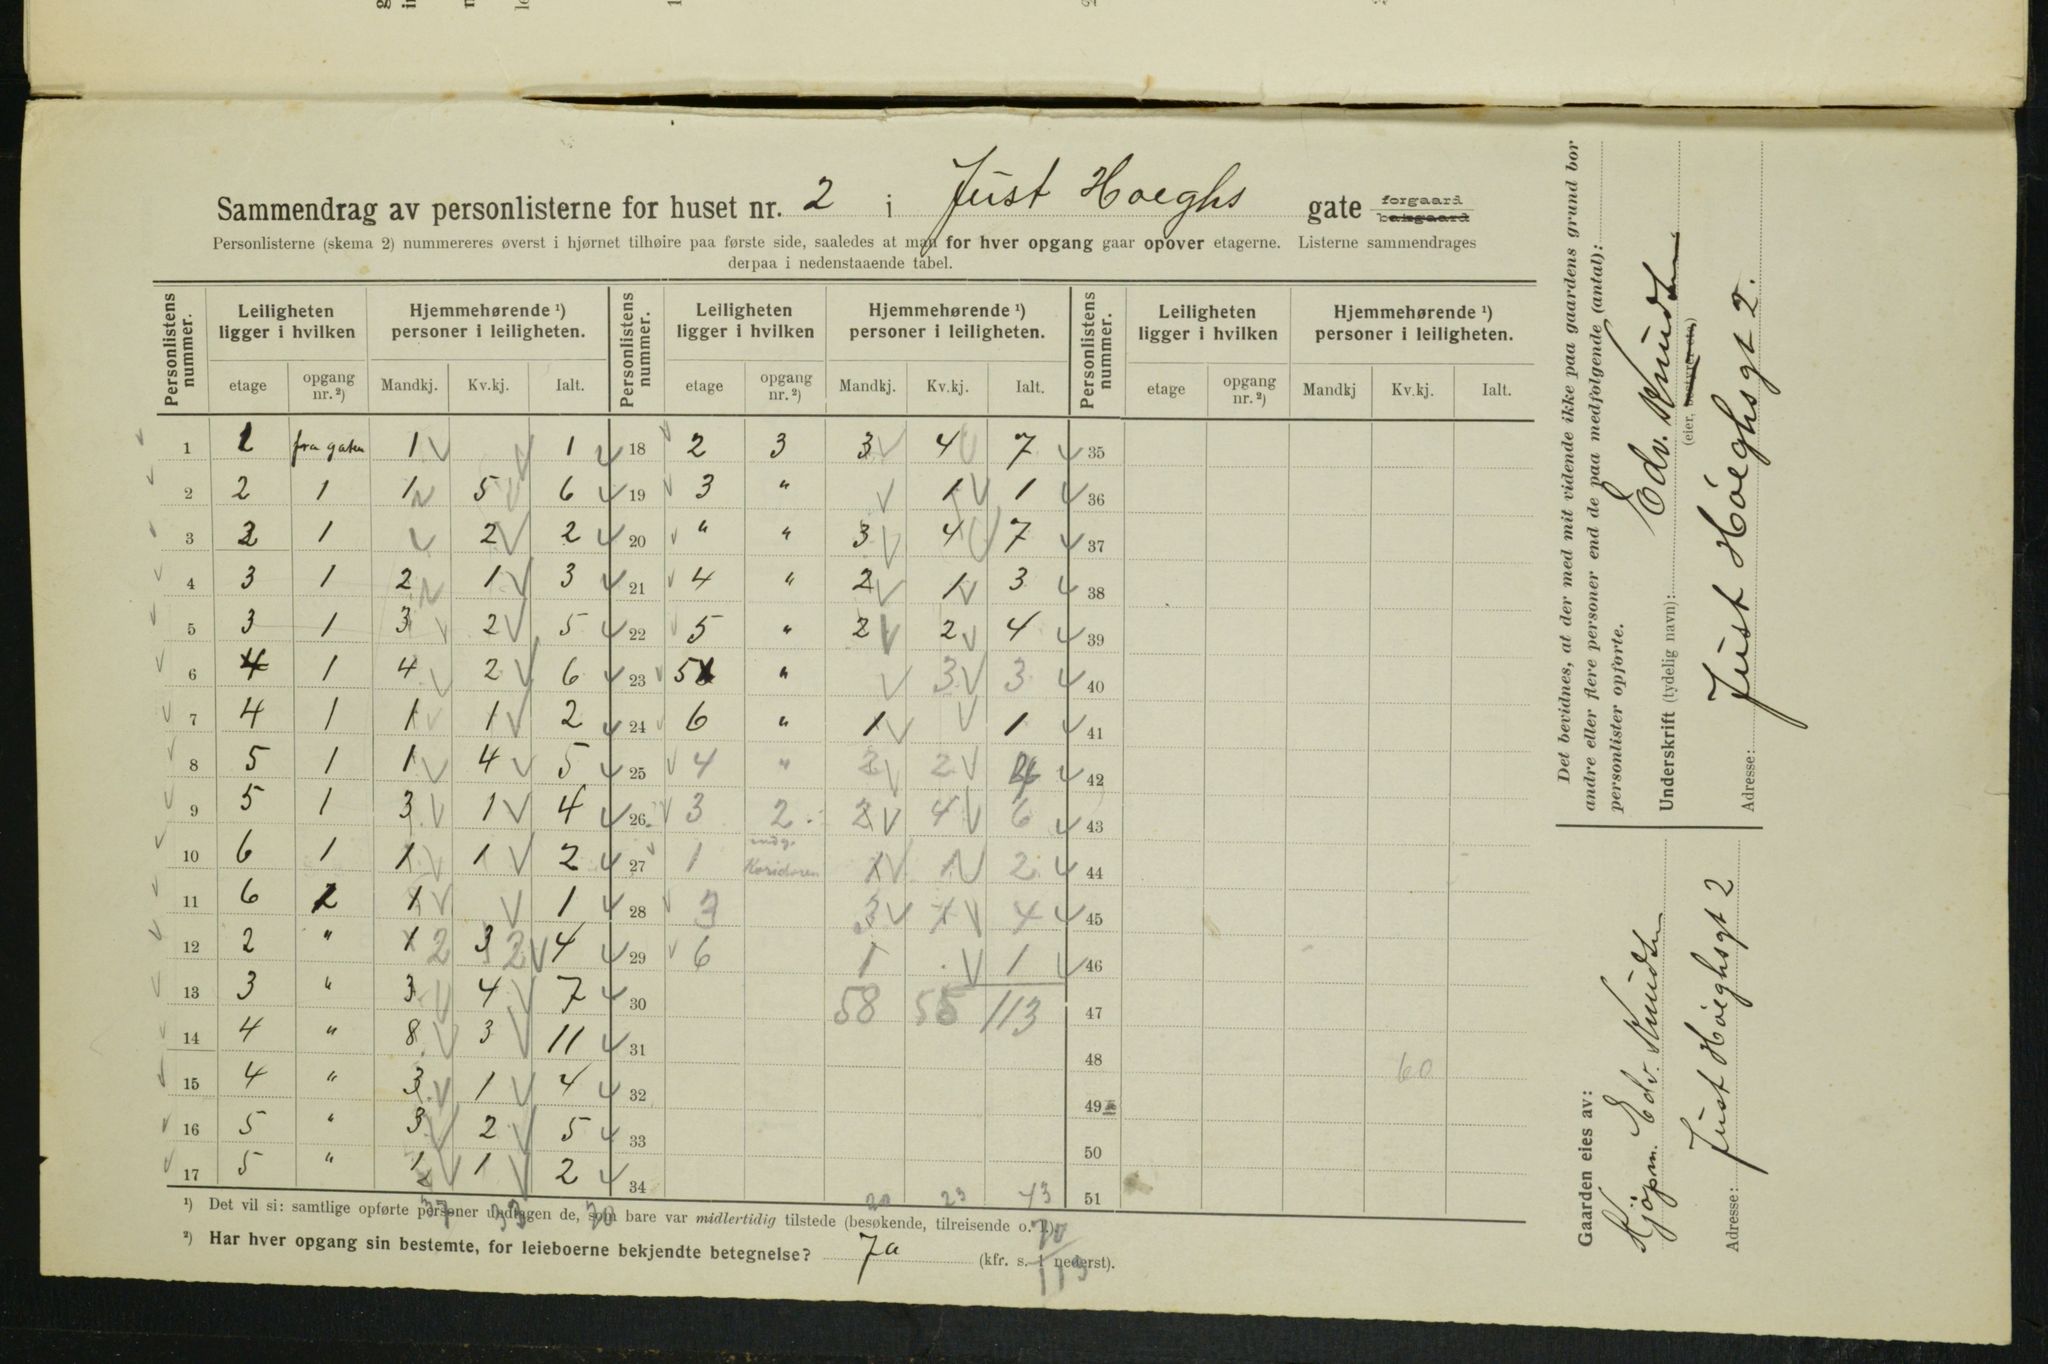 Sammendrag av personlisterne for huset nr. 2 i Just Hoeghs gate forgaard bakgaard
Personlisterne (skema 2) nummereres øverst i hjørnet tilhøire paa første side, saaledes at man for hver opgang gaar opover etagerne. Listerne sammendrages
derpaa i nedenstaaende tabel.
Personlistens nummer. Leiligheten ligger i hvilken Hjemmehørende ¹) personer i leiligheten. Personlistens nummer. Leiligheten ligger i hvilken Hjemmehørende ¹) personer i leiligheten. Personlistens nummer. Leiligheten ligger i hvilken Hjemmehørende ¹) personer i leiligheten.
etage opgang nr. ²) Mandkj. Kv.kj. Ialt. etage opgang nr. ²) Mandkj. Kv.kj. Ialt. etage opgang nr. ²) Mandkj Kv.kj. Ialt.
1 1 fra gaten 1 1 18 2 3 3 4 7 35
2 2 1 1 5 6 19 3 " 1 1 36
3 2 1 2 2 20 " " 3 4 7 37
4 3 1 2 1 3 21 4 " 2 1 3 38
5 3 1 3 2 5 22 5 " 2 2 4 39
6 4 1 4 2 6 23 5 " 3 3 40
7 4 1 1 1 2 24 6 " 1 1 41
8 5 1 1 4 5 25 4 " 2 2 4 42
9 5 1 3 1 4 26 3 2 2 4 6 43
10 6 1 1 1 2 27 1 indg. Koridoren 1 1 2 44
11 6 2 1 1 28 3 3 1 4 45
12 2 " 1 2 3 2 4 29 6 1 . 1 46
13 3 " 3 4 7 30 58 55 113 47
14 4 " 8 3 11 31 48
15 4 " 3 1 4 32 60 49
16 5 " 3 2 5 33 50
17 5 " 1 1 2 34 51
37 33 70 20 23 43
¹) Det vil si: samtlige opførte personer undtagen de, som bare var midlertidig tilstede (besøkende, tilreisende o. l.).
70
²) Har hver opgang sin bestemte, for leieboerne bekjendte betegnelse? Ja (kfr. s. 1 nederst).
113
Det bevidnes, at der med mit vidende ikke paa gaardens grund bor
andre eller flere personer end de paa medfolgende (antal):
personlister opforte.
Underskrift (tydelig navn): Edv. Knudtzn
(eier, bestyrer etc.)
Adresse: Just Höeghsgt 2.
Gaarden eies av:
Kjøpm. Edv. Knudtzn
Adresse: Just Höeghsgt 2